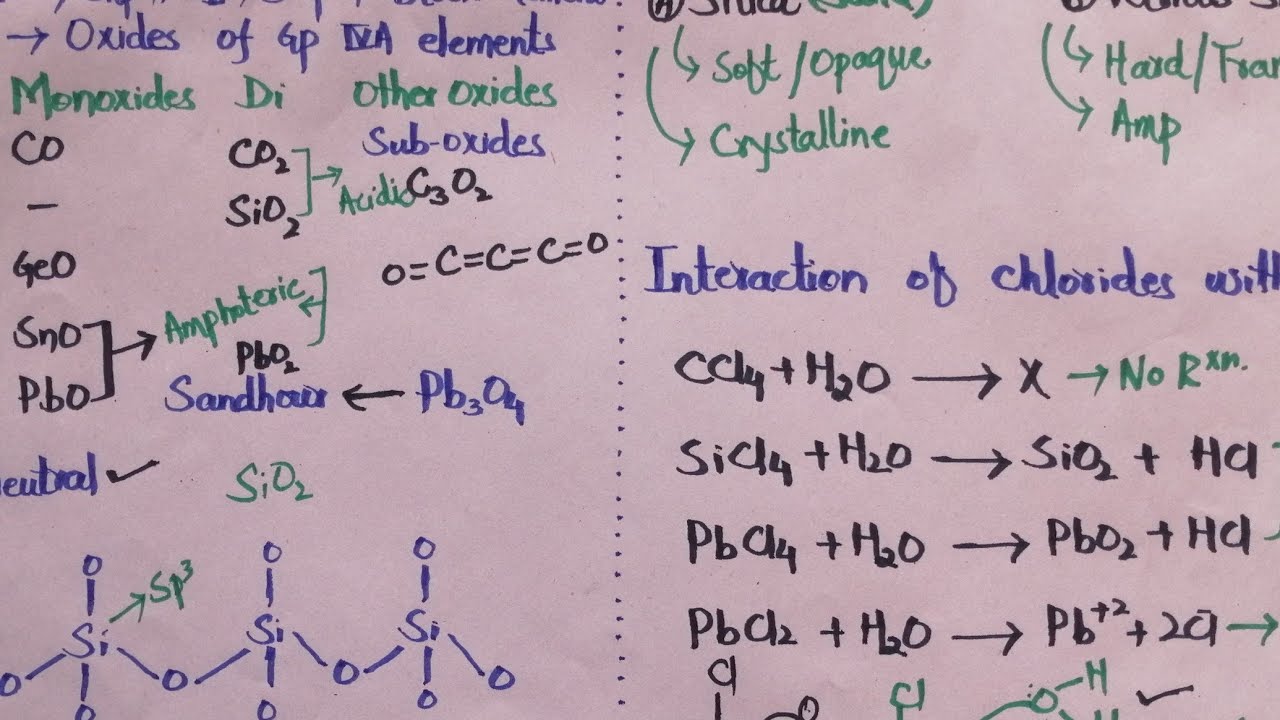 → Oxides of Gp IVA elements
Monoxides Di Other oxides
CO CO₂ Sub-oxides
– SiO₂ Acidic C₃O₂
GeO O=C=C=C=O
SnO Amphoteric
PbO PbO₂
Sandhour ← Pb₃O₄
eutral ✓ SiO₂
O O O
Sp³
Si Si Si
O O O O
O O O
Soft/Opaque
Crystalline
Hard/Tran
Amp
Interaction of chlorides with
CCl₄ + H₂O → X → No Rxn.
SiCl₄ + H₂O → SiO₂ + HCl
PbCl₄ + H₂O → PbO₂ + HCl
PbCl₂ + H₂O → Pb⁺² + 2Cl⁻ →
Cl Cl O H